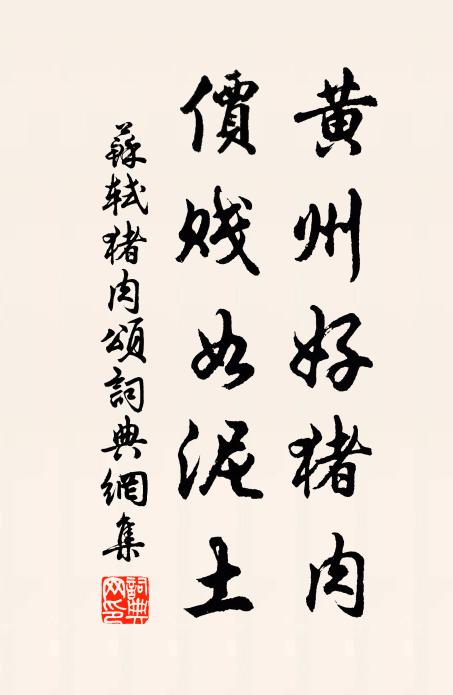 黄州好猪肉
價賤如泥土
蘇軾猪肉頌詞典網集
詞典網印